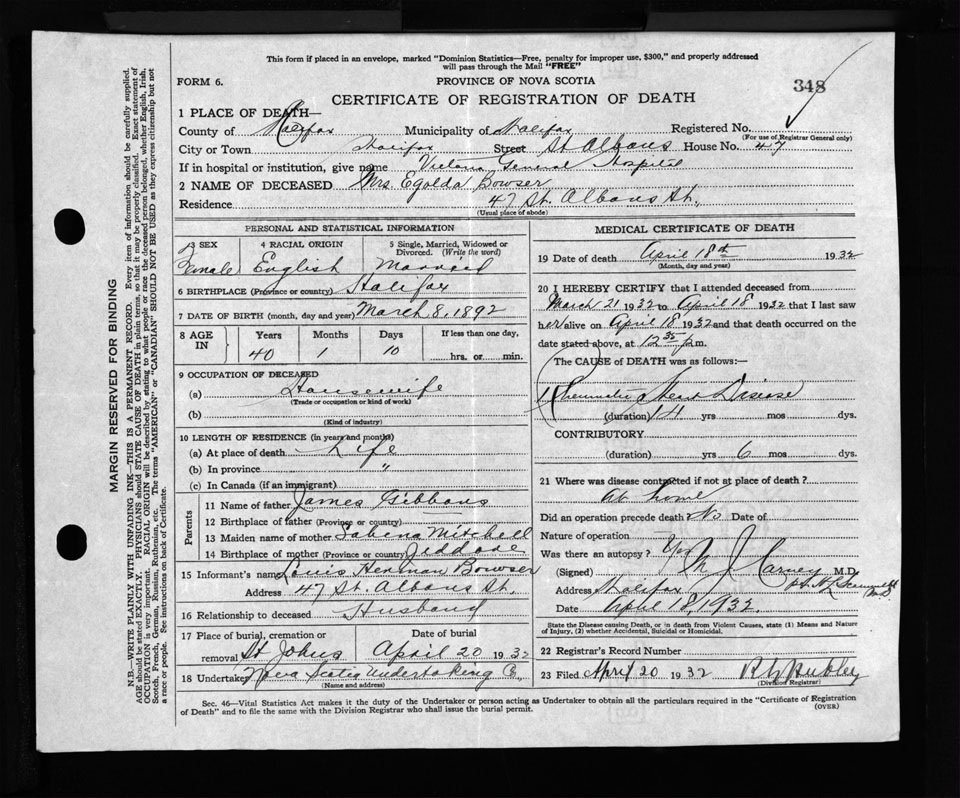 This form if placed in an envelope, marked "Dominion Statistics—Free, penalty for improper use, $300," and properly addressed
will pass through the Mail "FREE"
FORM 6.
PROVINCE OF NOVA SCOTIA
348
CERTIFICATE OF REGISTRATION OF DEATH
1 PLACE OF DEATH—
County of Halifax Municipality of Halifax Registered No.
(For use of Registrar General only)
City or Town Halifax Street St Albans House No. 47
If in hospital or institution, give name Victoria General Hospital
2 NAME OF DECEASED Mrs. Egolda Bowser
Residence 47 St. Albans St.,
(Usual place of abode)
PERSONAL AND STATISTICAL INFORMATION
3 SEX 4 RACIAL ORIGIN 5 Single, Married, Widowed or
Divorced. (Write the word)
Female English Married
6 BIRTHPLACE (Province or country) Halifax
7 DATE OF BIRTH (month, day and year) March 8, 1892
8 AGE IN Years Months Days If less than one day,
40 1 10 hrs. or min.
9 OCCUPATION OF DECEASED
(a) Housewife
(Trade or occupation or kind of work)
(b)
(Kind of industry)
10 LENGTH OF RESIDENCE (in years and months)
(a) At place of death Life
(b) In province "
(c) In Canada (if an immigrant)
Parents
11 Name of father James Gibbons
12 Birthplace of father (Province or country) —
13 Maiden name of mother Sabina Mitchell
14 Birthplace of mother (Province or country) Jeddore
15 Informant's name Louis Herman Bowser
Address 47 St. Albans St.
16 Relationship to deceased Husband
17 Place of burial, cremation or Date of burial
removal St Johns April 20 1932
18 Undertaker Nova Scotia Undertaking Co.
(Name and address)
MEDICAL CERTIFICATE OF DEATH
19 Date of death April 18th 1932
(Month, day and year)
20 I HEREBY CERTIFY that I attended deceased from
March 21 1932 to April 18 1932 that I last saw
her alive on April 18 1932 and that death occurred on the
date stated above, at 12 35 p.m.
The CAUSE OF DEATH was as follows:—
Rheumatic Heart Disease
(duration) 14 yrs mos dys.
CONTRIBUTORY
(duration) yrs 6 mos dys.
21 Where was disease contracted if not at place of death?
At home
Did an operation precede death No Date of
Nature of operation
Was there an autopsy? Yes
(Signed) M J Carney M.D.
Address Halifax
Date April 18, 1932.
State the Disease causing Death, or in death from Violent Causes, state (1) Means and Nature
of Injury, (2) whether Accidental, Suicidal or Homicidal.
22 Registrar's Record Number
23 Filed April 20 1932
(Division Registrar)
Sec. 46—Vital Statistics Act makes it the duty of the Undertaker or person acting as Undertaker to obtain all the particulars required in the "Certificate of Registration
of Death" and to file the same with the Division Registrar who shall issue the burial permit.
(OVER)
MARGIN RESERVED FOR BINDING
N.B.—WRITE PLAINLY WITH UNFADING INK—THIS IS A PERMANENT RECORD. Every item of information should be carefully supplied.
AGE should be stated EXACTLY. PHYSICIANS should STATE CAUSE OF DEATH in plain terms, so that it may be properly classified. Exact statement of
OCCUPATION is very important. RACIAL ORIGIN will be described by stating to what people or race the deceased person belonged, whether English, Irish,
Scotch, French, German, Russian, Ruthenian, etc. The terms "AMERICAN" or "CANADIAN" SHOULD NOT BE USED as they express citizenship but not
a race or people. See instructions on back of Certificate.